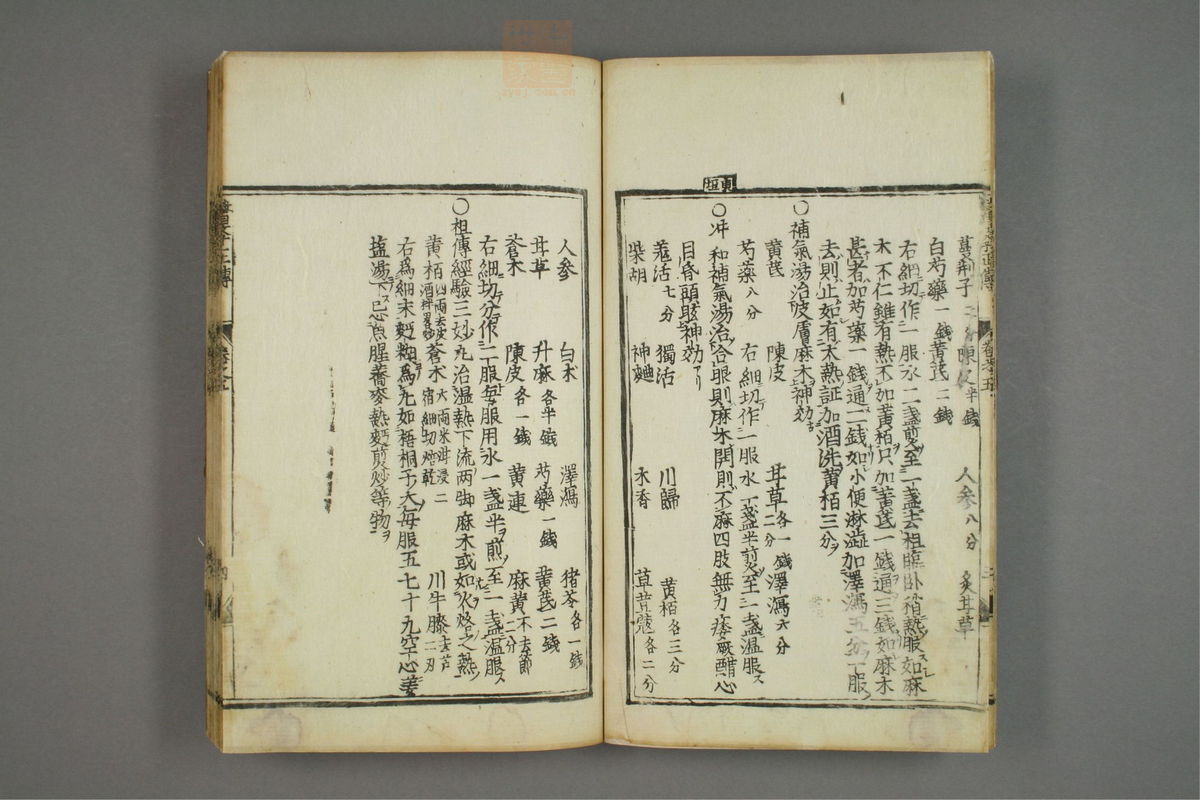 蔓荊子二分 陳皮半錢 人參八分 炙甘草
白芍藥一錢 黄芪二錢
右細切作一服水二盞煎至一盞去柤臨卧稍熱服如麻
木不仁雖有熱不加黄栢只加黄芪一錢通三錢如麻木
甚者加芍藥一錢通二錢如小便淋澁加澤瀉五分一服
去則止如有大熱証加酒洗黄栢三分
○補氣湯治皮膚麻木神効
黄芪 陳皮 甘草各一錢 澤瀉六分
芍藥八分 右細切作一服水一盞半煎至一盞温服
東垣
○冲和補氣湯治合眼則麻木開則不麻四肢無力痿厥醋心
目昏頭眩神効
羗活七分 獨活 川歸 黄栢各三分
柴胡 神麯 木香 草荳蔲各二分
人參 白朮 澤瀉 猪苓各一錢
甘草 升麻各半錢 芍藥一錢 黄芪二錢
蒼朮 陳皮各一錢 黄連 麻黄不去節二分
右細切分作二服毎服用水一盞半煎至一盞温服
○祖傳經驗三妙丸治温熱下流两脚麻木或如火烙之熱
黄栢四兩去皮酒拌畧炒 蒼朮六兩米泔浸二宿細切焙乾 川牛膝去芦二兩
右爲細末麪糊爲丸如梧桐子大毎服五七十丸空心姜
塩湯下忌魚腥蕎麥熱麪煎炒等物